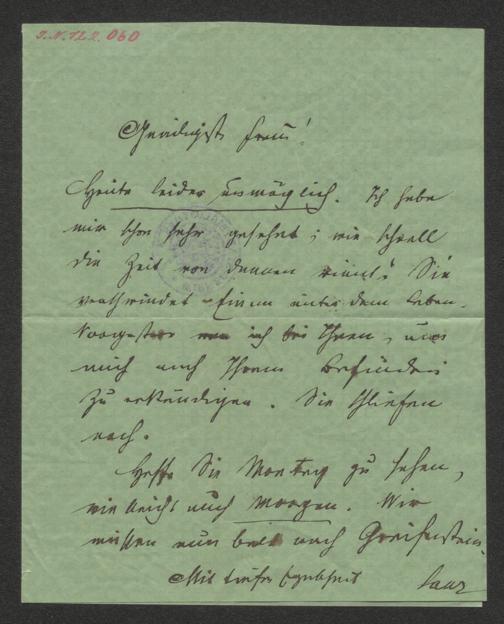 I.N.122.060
Gnädigste Frau!
Heute leider unmöglich. Ich habe
mir schon sehr gesehnt; wie schnell
die Zeit von dannen rinnt! Sie
verschwindet
Vorgestern war ich bei Ihnen, um
mich nach Ihrem Befinden
zu erkundigen. Sie schliefen
noch.
Hoffe Sie Montag zu sehen,
vielleicht auch morgen. Wir
müssen nun bald nach Greifenstein.
Mit tiefer Ergebenheit